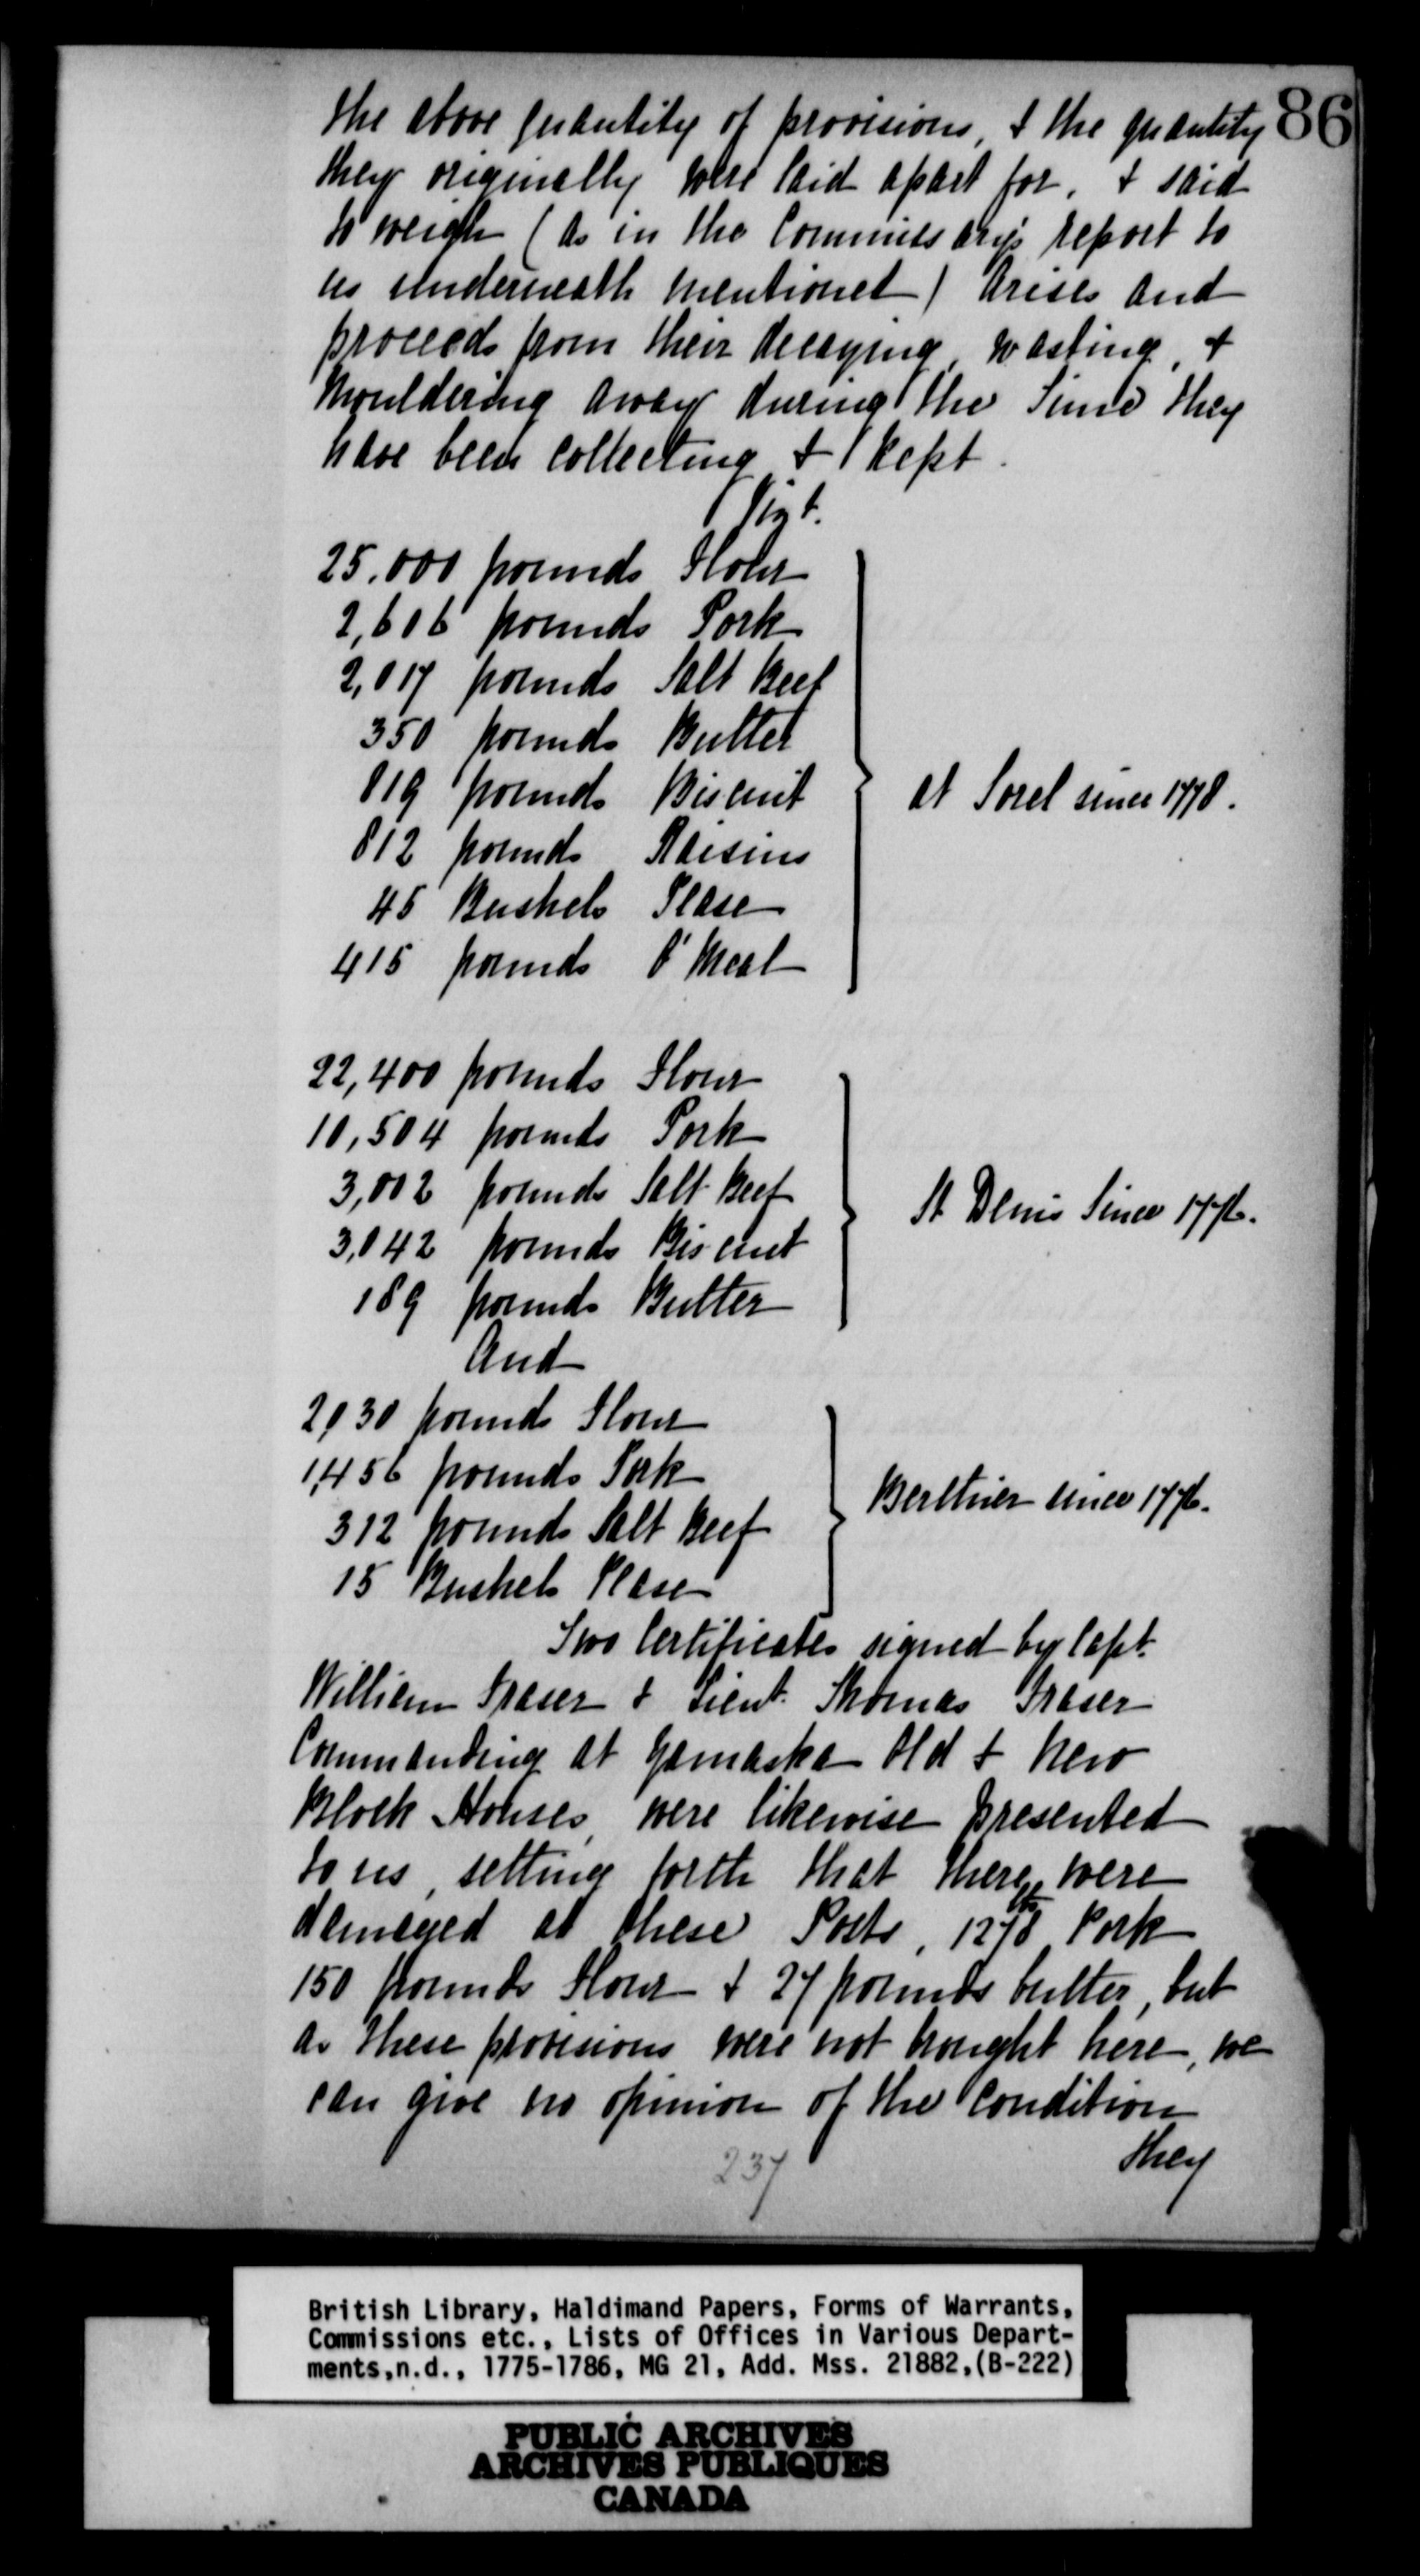 86
the above quantity of provisions, & the quantity
they originally were laid apart for, & said
to weigh (as in the Commissary's report to
us underneath mentioned) arises and
proceeds from their decaying, wasting, &
mouldering away during the time they
have been collecting & kept.
Vizt.
25,000 pounds Flour
2,606 pounds Pork
2,017 pounds Salt Beef
350 pounds Butter
819 pounds Biscuit
812 pounds Raisins
45 Bushels Pease
415 pounds O'Meal
at Sorel since 1778.
22,400 pounds Flour
10,504 pounds Pork
3,002 pounds Salt Beef
3,042 pounds Biscuit
189 pounds Butter
St Denis Since 1776.
And
2,030 pounds Flour
1,456 pounds Pork
312 pounds Salt Beef
15 Bushels Pease
Berthier since 1776.
Two Certificates signed by Capt.
William Fraser & Lieut. Thomas Fraser
Commanding at Yamaska Old & New
Block Houses, were likewise presented
to us, setting forth that there were
damaged at these Posts, 1278 lbs Pork
150 pounds Flour & 27 pounds butter, but
as these provisions were not brought here, we
can give no opinion of the condition
they
237
British Library, Haldimand Papers, Forms of Warrants,
Commissions etc., Lists of Offices in Various Depart-
ments,n.d., 1775-1786, MG 21, Add. Mss. 21882,(B-222)
PUBLIC ARCHIVES
ARCHIVES PUBLIQUES
CANADA